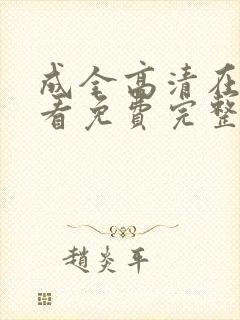 成全高清在
看免费完整
趙炎平